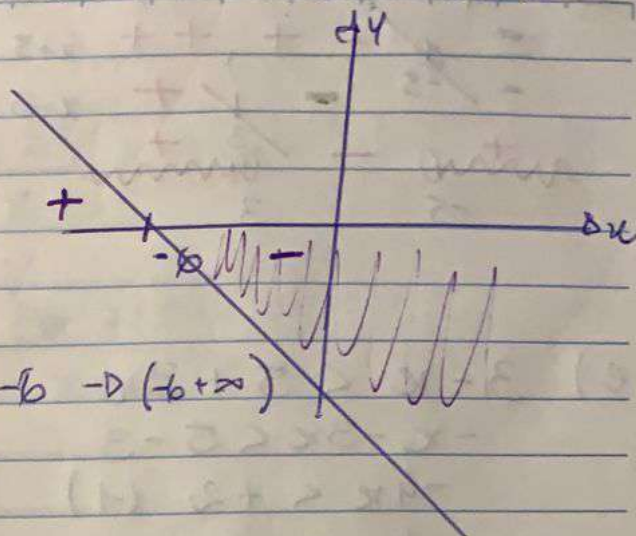 y
+
x
-6
-
-6 → (-6 +∞)